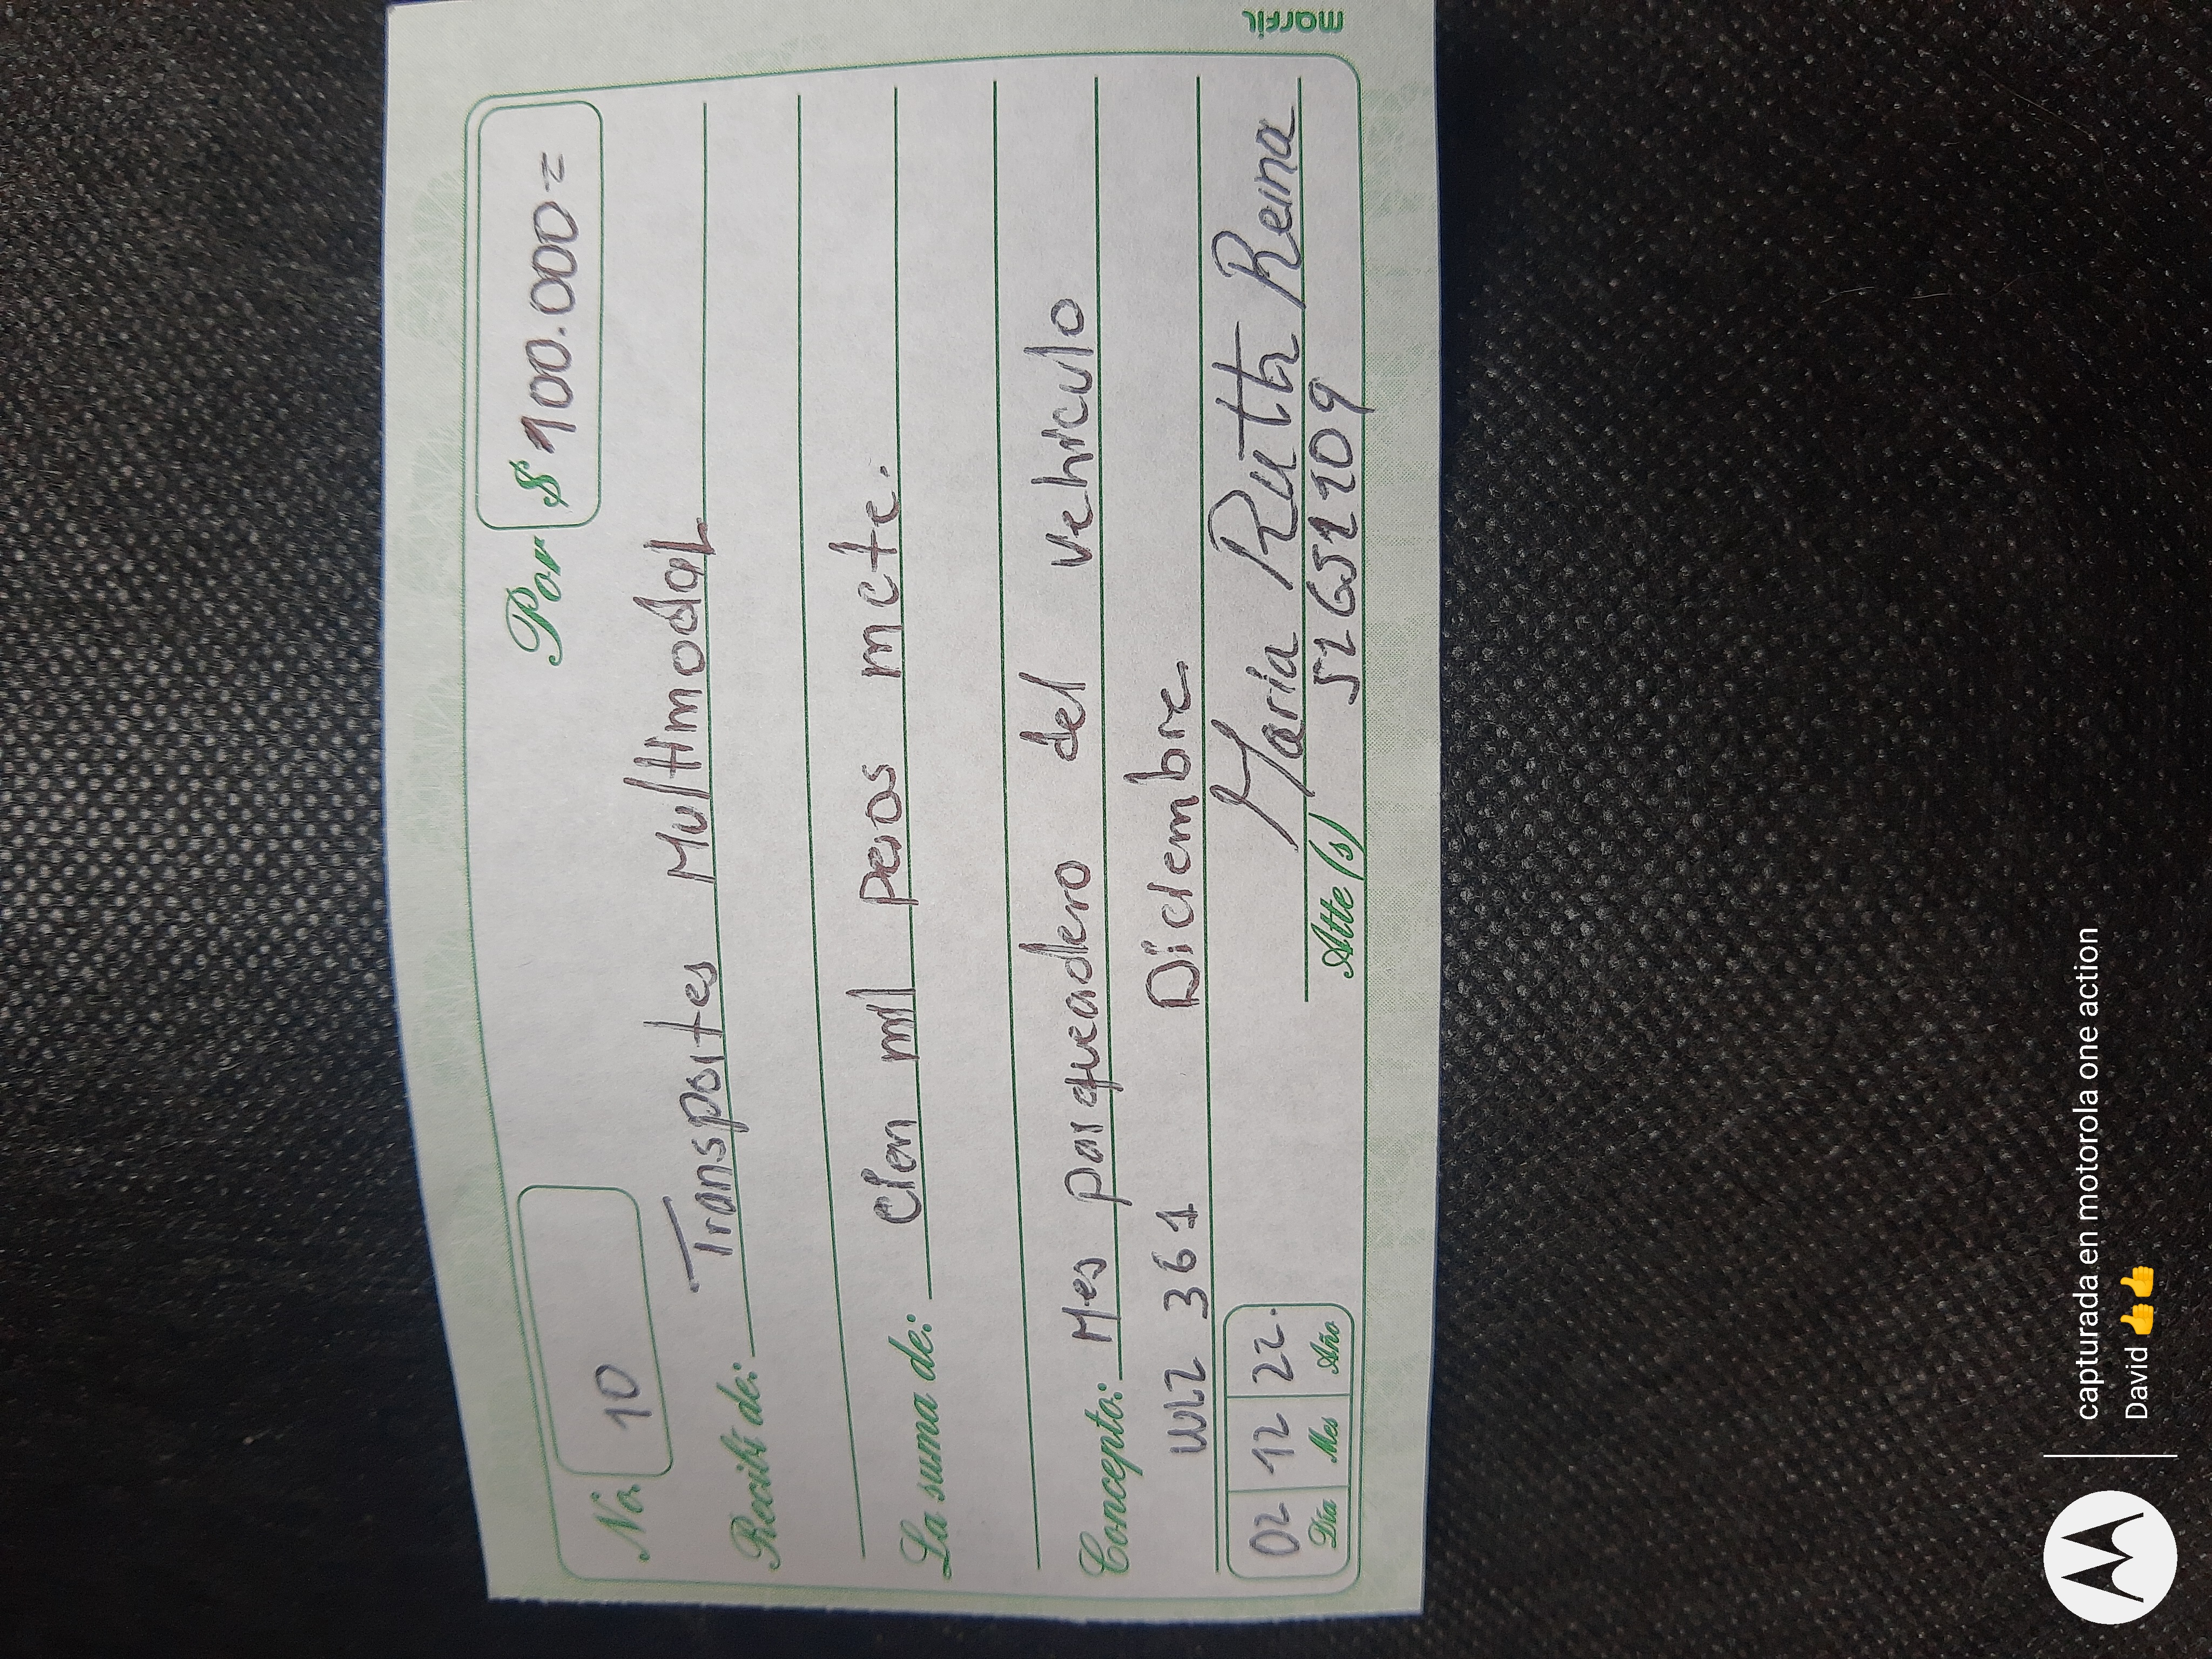 No. 10
Por $ 100.000=
Recibí de: Transportes Multimodal
La suma de: Cien mil pesos mcte.
Concepto: Mes parqueadero del vehiculo
WLZ 361 Diciembre
02 12 22.
Día Mes Año
Maria Ruth Reina
Atte (s) 52651209
marfil
capturada en motorola one action
David 👍👍